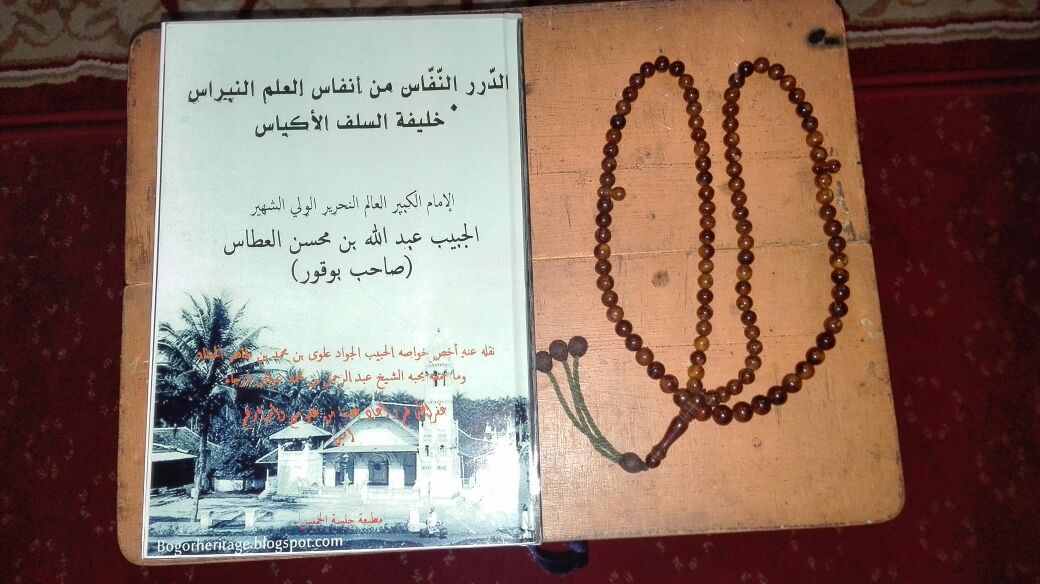 الدّرر النّفّاس من أنفاس العلم النيبراس
خليفة السلف الأكياس
الإمام الكبير العالم النحرير الولي الشهير
الحبيب عبد الله بن محسن العطاس
(صاحب بوقور)
نقله عنه أخص خواصه الحبيب الجواد علوى بن محمد بن طاهر
محبه الشيخ عبد الرحمن بن
مطبعة جلسة الخميس
Bogorheritage.blogspot.com